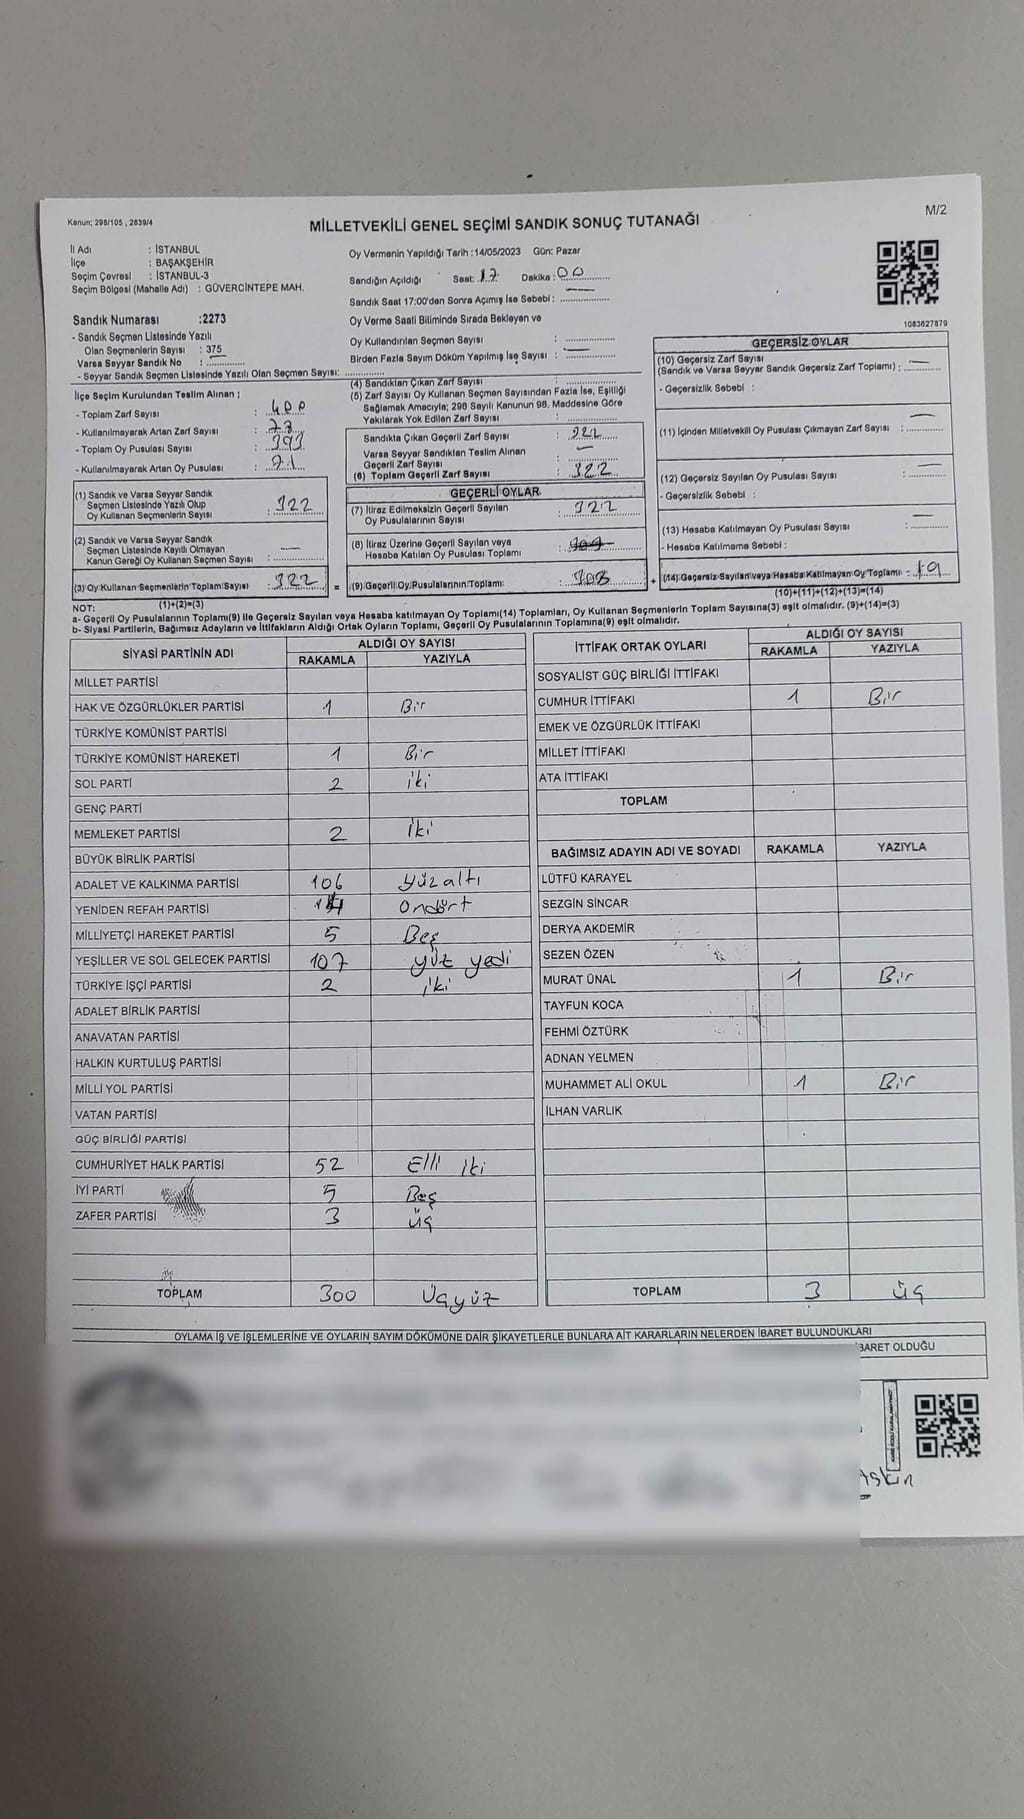 Kanun; 298/105 , 2839/4
MİLLETVEKİLİ GENEL SEÇİMİ SANDIK SONUÇ TUTANAĞI
M/2
İl Adı : İSTANBUL
İlçe : BAŞAKŞEHİR
Seçim Çevresi : İSTANBUL-3
Seçim Bölgesi (Mahalle Adı) : GÜVERCİNTEPE MAH.
Oy Vermenin Yapıldığı Tarih : 14/05/2023 Gün: Pazar
Sandığın Açıldığı Saat: 17 Dakika : 00
Sandık Saat 17:00'den Sonra Açımış İse Sebebi :
Sandık Numarası :2273
- Sandık Seçmen Listesinde Yazılı
Olan Seçmenlerin Sayısı : 375
Varsa Seyyar Sandık No :
- Seyyar Sandık Seçmen Listesinde Yazılı Olan Seçmen Sayısı:
Oy Verme Saati Bitiminde Sırada Bekleyen ve
Oy Kullandırılan Seçmen Sayısı :
Birden Fazla Sayım Döküm Yapılmış İse Sayısı :
1083627879
İlçe Seçim Kurulundan Teslim Alınan ;
- Toplam Zarf Sayısı : 400
- Kullanılmayarak Artan Zarf Sayısı :
- Toplam Oy Pusulası Sayısı : 393
- Kullanılmayarak Artan Oy Pusulası : 71
(1) Sandık ve Varsa Seyyar Sandık
Seçmen Listesinde Yazılı Olup
Oy Kullanan Seçmenlerin Sayısı : 322
(2) Sandık ve Varsa Seyyar Sandık
Seçmen Listesinde Kayıtlı Olmayan
Kanun Gereği Oy Kullanan Seçmen Sayısı : —
(3) Oy Kullanan Seçmenlerin Toplam Sayısı : 322
(1)+(2)=(3)
(4) Sandıktan Çıkan Zarf Sayısı :
(5) Zarf Sayısı Oy Kullanan Seçmen Sayısından Fazla İse, Eşitliği
Sağlamak Amacıyla; 298 Sayılı Kanunun 98. Maddesine Göre
Yakılarak Yok Edilen Zarf Sayısı :
Sandıkta Çıkan Geçerli Zarf Sayısı : 322
Varsa Seyyar Sandıktan Teslim Alınan
Geçerli Zarf Sayısı : —
(6) Toplam Geçerli Zarf Sayısı : 322
GEÇERLİ OYLAR
(7) İtiraz Edilmeksizin Geçerli Sayılan
Oy Pusulalarının Sayısı : 322
(8) İtiraz Üzerine Geçerli Sayılan veya
Hesaba Katılan Oy Pusulası Toplamı :
= (9) Geçerli Oy Pusulalarının Toplamı : 303
GEÇERSİZ OYLAR
(10) Geçersiz Zarf Sayısı
(Sandık ve Varsa Seyyar Sandık Geçersiz Zarf Toplamı) : —
- Geçersizlik Sebebi :
(11) İçinden Milletvekili Oy Pusulası Çıkmayan Zarf Sayısı : —
(12) Geçersiz Sayılan Oy Pusulası Sayısı : —
- Geçersizlik Sebebi :
(13) Hesaba Katılmayan Oy Pusulası Sayısı : —
- Hesaba Katılmama Sebebi :
+ (14) Geçersiz Sayılan veya Hesaba Katılmayan Oy Toplamı : 19
(10)+(11)+(12)+(13)=(14)
NOT:
a- Geçerli Oy Pusulalarının Toplamı(9) ile Geçersiz Sayılan veya Hesaba katılmayan Oy Toplamı(14) Toplamları, Oy Kullanan Seçmenlerin Toplam Sayısına(3) eşit olmalıdır. (9)+(14)=(3)
b- Siyasi Partilerin, Bağımsız Adayların ve İttifakların Aldığı Ortak Oyların Toplamı, Geçerli Oy Pusulalarının Toplamına(9) eşit olmalıdır.
SİYASİ PARTİNİN ADI ALDIĞI OY SAYISI
RAKAMLA YAZIYLA
MİLLET PARTİSİ
HAK VE ÖZGÜRLÜKLER PARTİSİ 1 Bir
TÜRKİYE KOMÜNİST PARTİSİ
TÜRKİYE KOMÜNİST HAREKETİ 1 Bir
SOL PARTİ 2 iki
GENÇ PARTİ
MEMLEKET PARTİSİ 2 iki
BÜYÜK BİRLİK PARTİSİ
ADALET VE KALKINMA PARTİSİ 106 yüzaltı
YENİDEN REFAH PARTİSİ 14 Ondört
MİLLİYETÇİ HAREKET PARTİSİ 5 Beş
YEŞİLLER VE SOL GELECEK PARTİSİ 107 yüz yedi
TÜRKİYE İŞÇİ PARTİSİ 2 iki
ADALET BİRLİK PARTİSİ
ANAVATAN PARTİSİ
HALKIN KURTULUŞ PARTİSİ
MİLLİ YOL PARTİSİ
VATAN PARTİSİ
GÜÇ BİRLİĞİ PARTİSİ
CUMHURİYET HALK PARTİSİ 52 Elli iki
İYİ PARTİ 5 Beş
ZAFER PARTİSİ 3 üç
TOPLAM 300 Üçyüz
İTTİFAK ORTAK OYLARI ALDIĞI OY SAYISI
RAKAMLA YAZIYLA
SOSYALİST GÜÇ BİRLİĞİ İTTİFAKI
CUMHUR İTTİFAKI 1 Bir
EMEK VE ÖZGÜRLÜK İTTİFAKI
MİLLET İTTİFAKI
ATA İTTİFAKI
TOPLAM
BAĞIMSIZ ADAYIN ADI VE SOYADI RAKAMLA YAZIYLA
LÜTFÜ KARAYEL
SEZGİN SİNCAR
DERYA AKDEMİR
SEZEN ÖZEN
MURAT ÜNAL 1 Bir
TAYFUN KOCA
FEHMİ ÖZTÜRK
ADNAN YELMEN
MUHAMMET ALİ OKUL 1 Bir
İLHAN VARLIK
TOPLAM 3 üç
OYLAMA İŞ VE İŞLEMLERİNE VE OYLARIN SAYIM DÖKÜMÜNE DAİR ŞİKAYETLERLE BUNLARA AİT KARARLARIN NELERDEN İBARET BULUNDUKLARI
BARET OLDUĞU
Aşkın